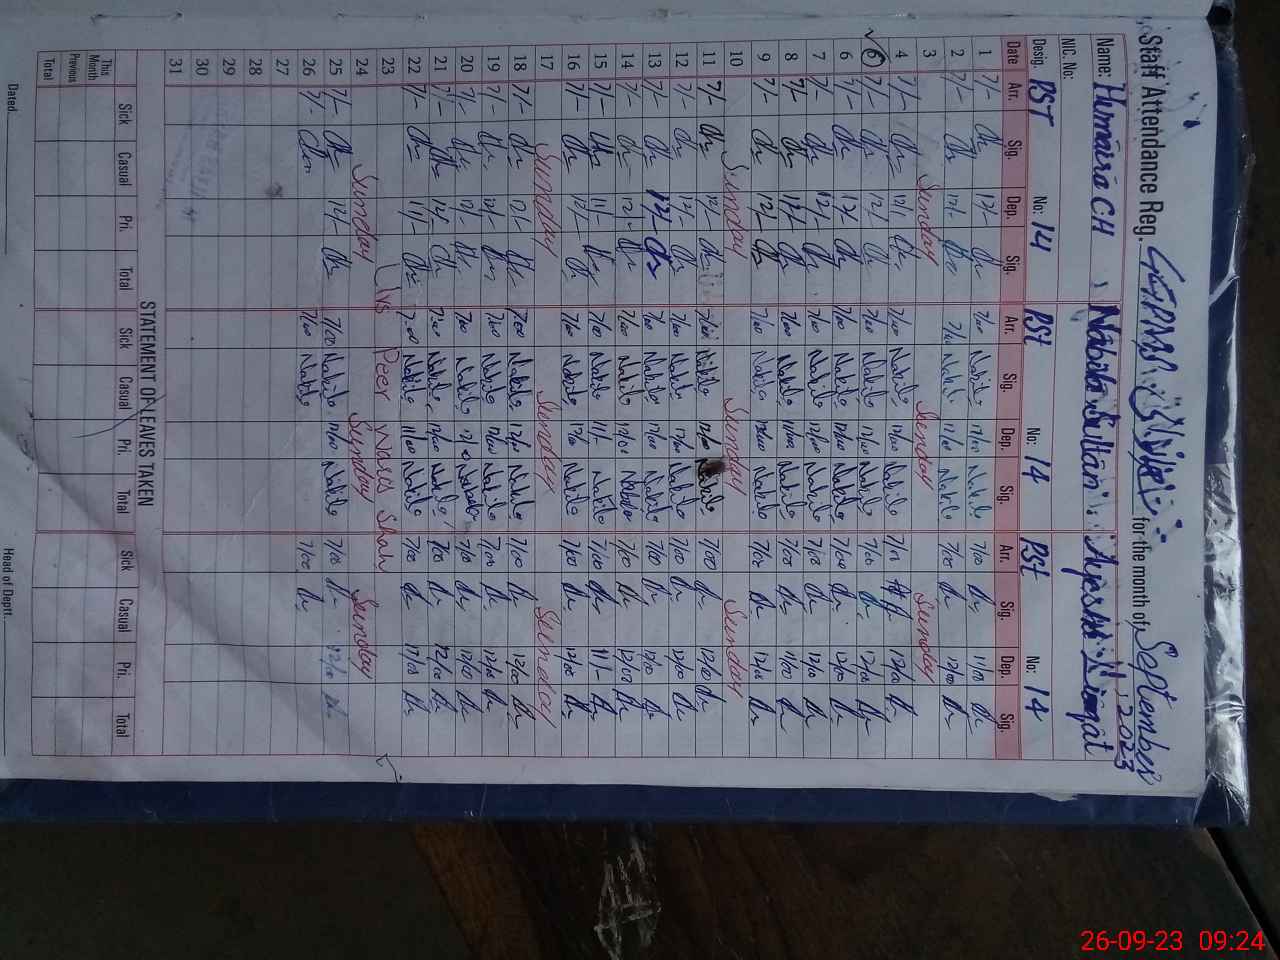 Staff Attendance Reg. for the month of September 2023
Name: Humaira CH Nabila Sultan Ayesha Liaqat
NIC. No:
Desig. PST No: 14 PST No: 14 PST No: 14
Date Arr. Sig. Dep. Sig. Arr. Sig. Dep. Sig. Arr. Sig. Dep. Sig.
1 7/- 12/- 7/00 Nabila 12/00 Nabila 7/00 11/00
2 7/- 12/- 7/00 Nabila 11/00 Nabila 7/00 12/00
3 Sunday Sunday Sunday
4 7/- 12/- 7/00 Nabila 12/00 Nabila 7/00 12/00
5 7/- 12/- 7/00 Nabila 12/00 Nabila 7/00 12/00
6 7/- 12/- 7/00 Nabila 12/00 Nabila 7/00 12/00
7 7/- 12/- 7/00 Nabila 12/00 Nabila 7/00 12/00
8 7/- 11/- 7/00 Nabila 11/00 Nabila 7/00 11/00
9 7/- 12/- 7/00 Nabila 12/00 Nabila 7/00 12/00
10 Sunday Sunday Sunday
11 7/- 12/- 7/00 Nabila 12/00 Nabila 7/00 12/00
12 7/- 12/- 7/00 Nabila 12/00 Nabila 7/00 12/00
13 7/- 12/- 7/00 Nabila 12/00 Nabila 7/00 12/00
14 7/- 12/- 7/00 Nabila 12/00 Nabila 7/00 12/00
15 7/- 11/- 7/00 Nabila 11/- Nabila 7/00 11/-
16 7/- 12/- 7/00 Nabila 12/00 Nabila 7/00 12/00
17 Sunday Sunday Sunday
18 7/- 12/- 7/00 Nabila 12/00 Nabila 7/00 12/00
19 7/- 12/- 7/00 Nabila 12/00 Nabila 7/00 12/00
20 7/- 12/- 7/00 Nabila 12/0 Nabila 7/00 12/00
21 7/- 12/- 7/00 Nabila 12/00 Nabila 7/00 12/00
22 7/- 11/- 7:00 Nabila 11/00 Nabila 7/00 12/00
23 Urs Peer Waris Shah
24 Sunday Sunday Sunday
25 7/- 12/- 7/00 Nabila 12/00 Nabila 7/00 12/00
26 7/- 7/00 Nabila 7/00
27
28
29
30
31
STATEMENT OF LEAVES TAKEN
Sick Casual Pri. Total Sick Casual Pri Total Sick Casual Pri. Total
This Month
Previous
Total
Dated Head of Deptt.
26-09-23 09:24